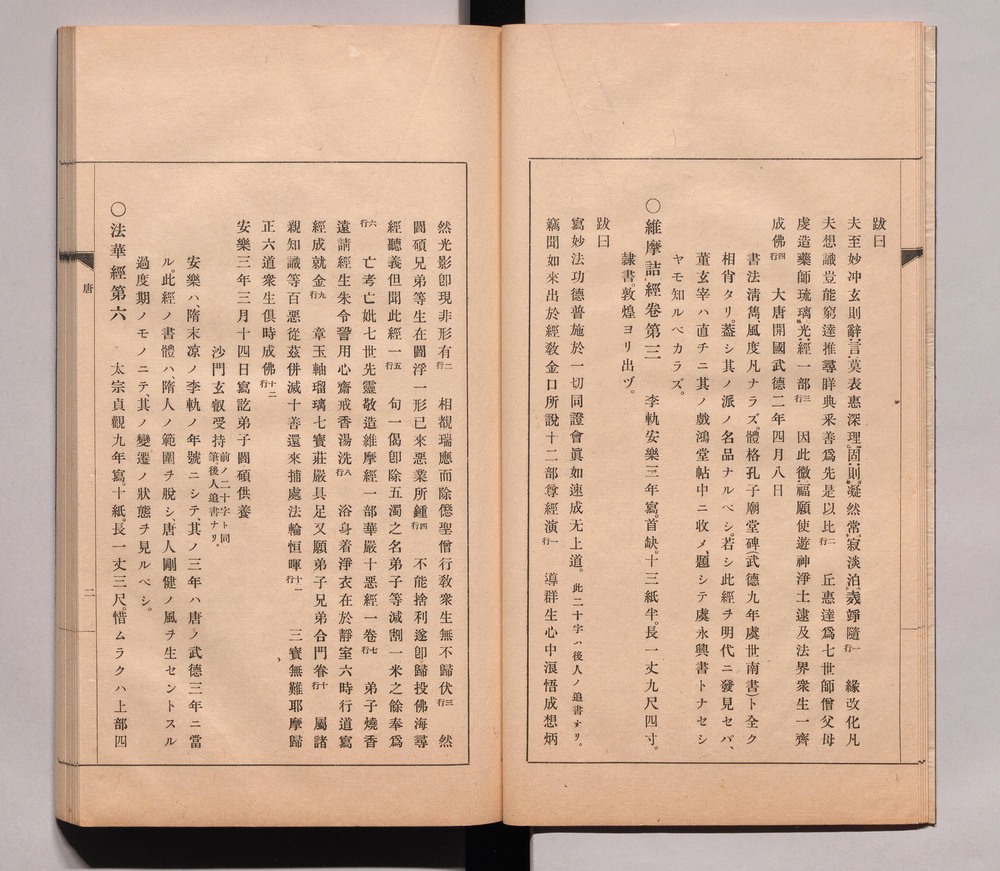 跋曰
夫至妙冲玄則辭言莫表惠深理固則凝然常寂淡泊㦤竫隨行一 緣改化凡
夫想識豈能窮達推尋眫典釆善爲先是以比行二 丘惠達爲七世師僧父母
虔造藥師琉璃光經一部行三 因此微福願使遊神淨土逮及法界衆生一齊
成佛行四 大唐開國武德二年四月八日
書法淸雋、風度凡ナラズ。體格孔子廟堂碑(武德九年虞世南書)ト全ク
相肖タリ。蓋シ其ノ派ノ名品ナルベシ。若シ此經ヲ明代ニ發見セバ、
董玄宰ハ直チニ其ノ戲鴻堂帖中ニ收メ、題シテ虞永興書トナセシ
ヤモ知ルベカラズ。
〇維摩詰經卷第三 李軌安樂三年寫。首缺。十三紙半。長一丈九尺四寸。
隷書。敦煌ヨリ出ヅ。
跋曰
寫妙法功德普施於一切同證會眞如速成无上道。此二十字ハ後人ノ追書ナリ。
竊聞如來出於經敎金口所說十二部尊經演行一 導群生心中泿悟成想炳
然光影卽現非形有行二 相覩瑞應而除僾聖僧行敎衆生無不歸伏行三 然
闘碩兄弟等生在閻浮一形已來惡業所鍾行四 不能捨利遂卽歸投佛海尋
經聽義但聞此經一行五 句一偈卽除五濁之名弟子等減割一米之餘奉爲
行六 亡考亡妣七世先靈敬造維摩經一部華嚴十惡經一卷行七 弟子燒香
遠請經生朱令䛑用心齋戒香湯洗行八 浴身着淨衣在於靜室六時行道寫
經成就金行九 章玉軸瑠璃七寶莊嚴具足又願弟子兄弟合門眷行十 屬諸
親知識等百惡從茲併滅十善還來捕處法輪恒暉行十一 三寶無難耶摩歸
正六道衆生俱時成佛行十二
安樂三年三月十四日寫訖弟子闘碩供養
沙門玄叡受持前ノ二十字ト同筆後人追書ナリ。
安樂ハ、隋末凉ノ李軌ノ年號ニシテ、其ノ三年ハ唐ノ武德三年ニ當
ル。此經ノ書體ハ隋人ノ範圍ヲ脫シ、唐人剛健ノ風ヲ生セントスル
過度期ノモノニテ、其ノ變遷ノ狀態ヲ見ルベシ。
〇法華經第六 太宗貞觀九年寫。十紙。長一丈三尺。惜ムラクハ上部四
唐
二